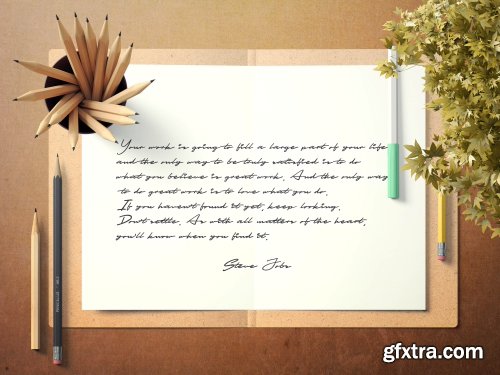 "Your work is going to fill a large part of your life
and the only way to be truly satisfied is to do
what you believe is great work. And the only way
to do great work is to love what you do.
If you haven't found it yet, keep looking.
Don't settle. As with all matters of the heart,
you'll know when you find it.
Steve Jobs
gfxtra.com